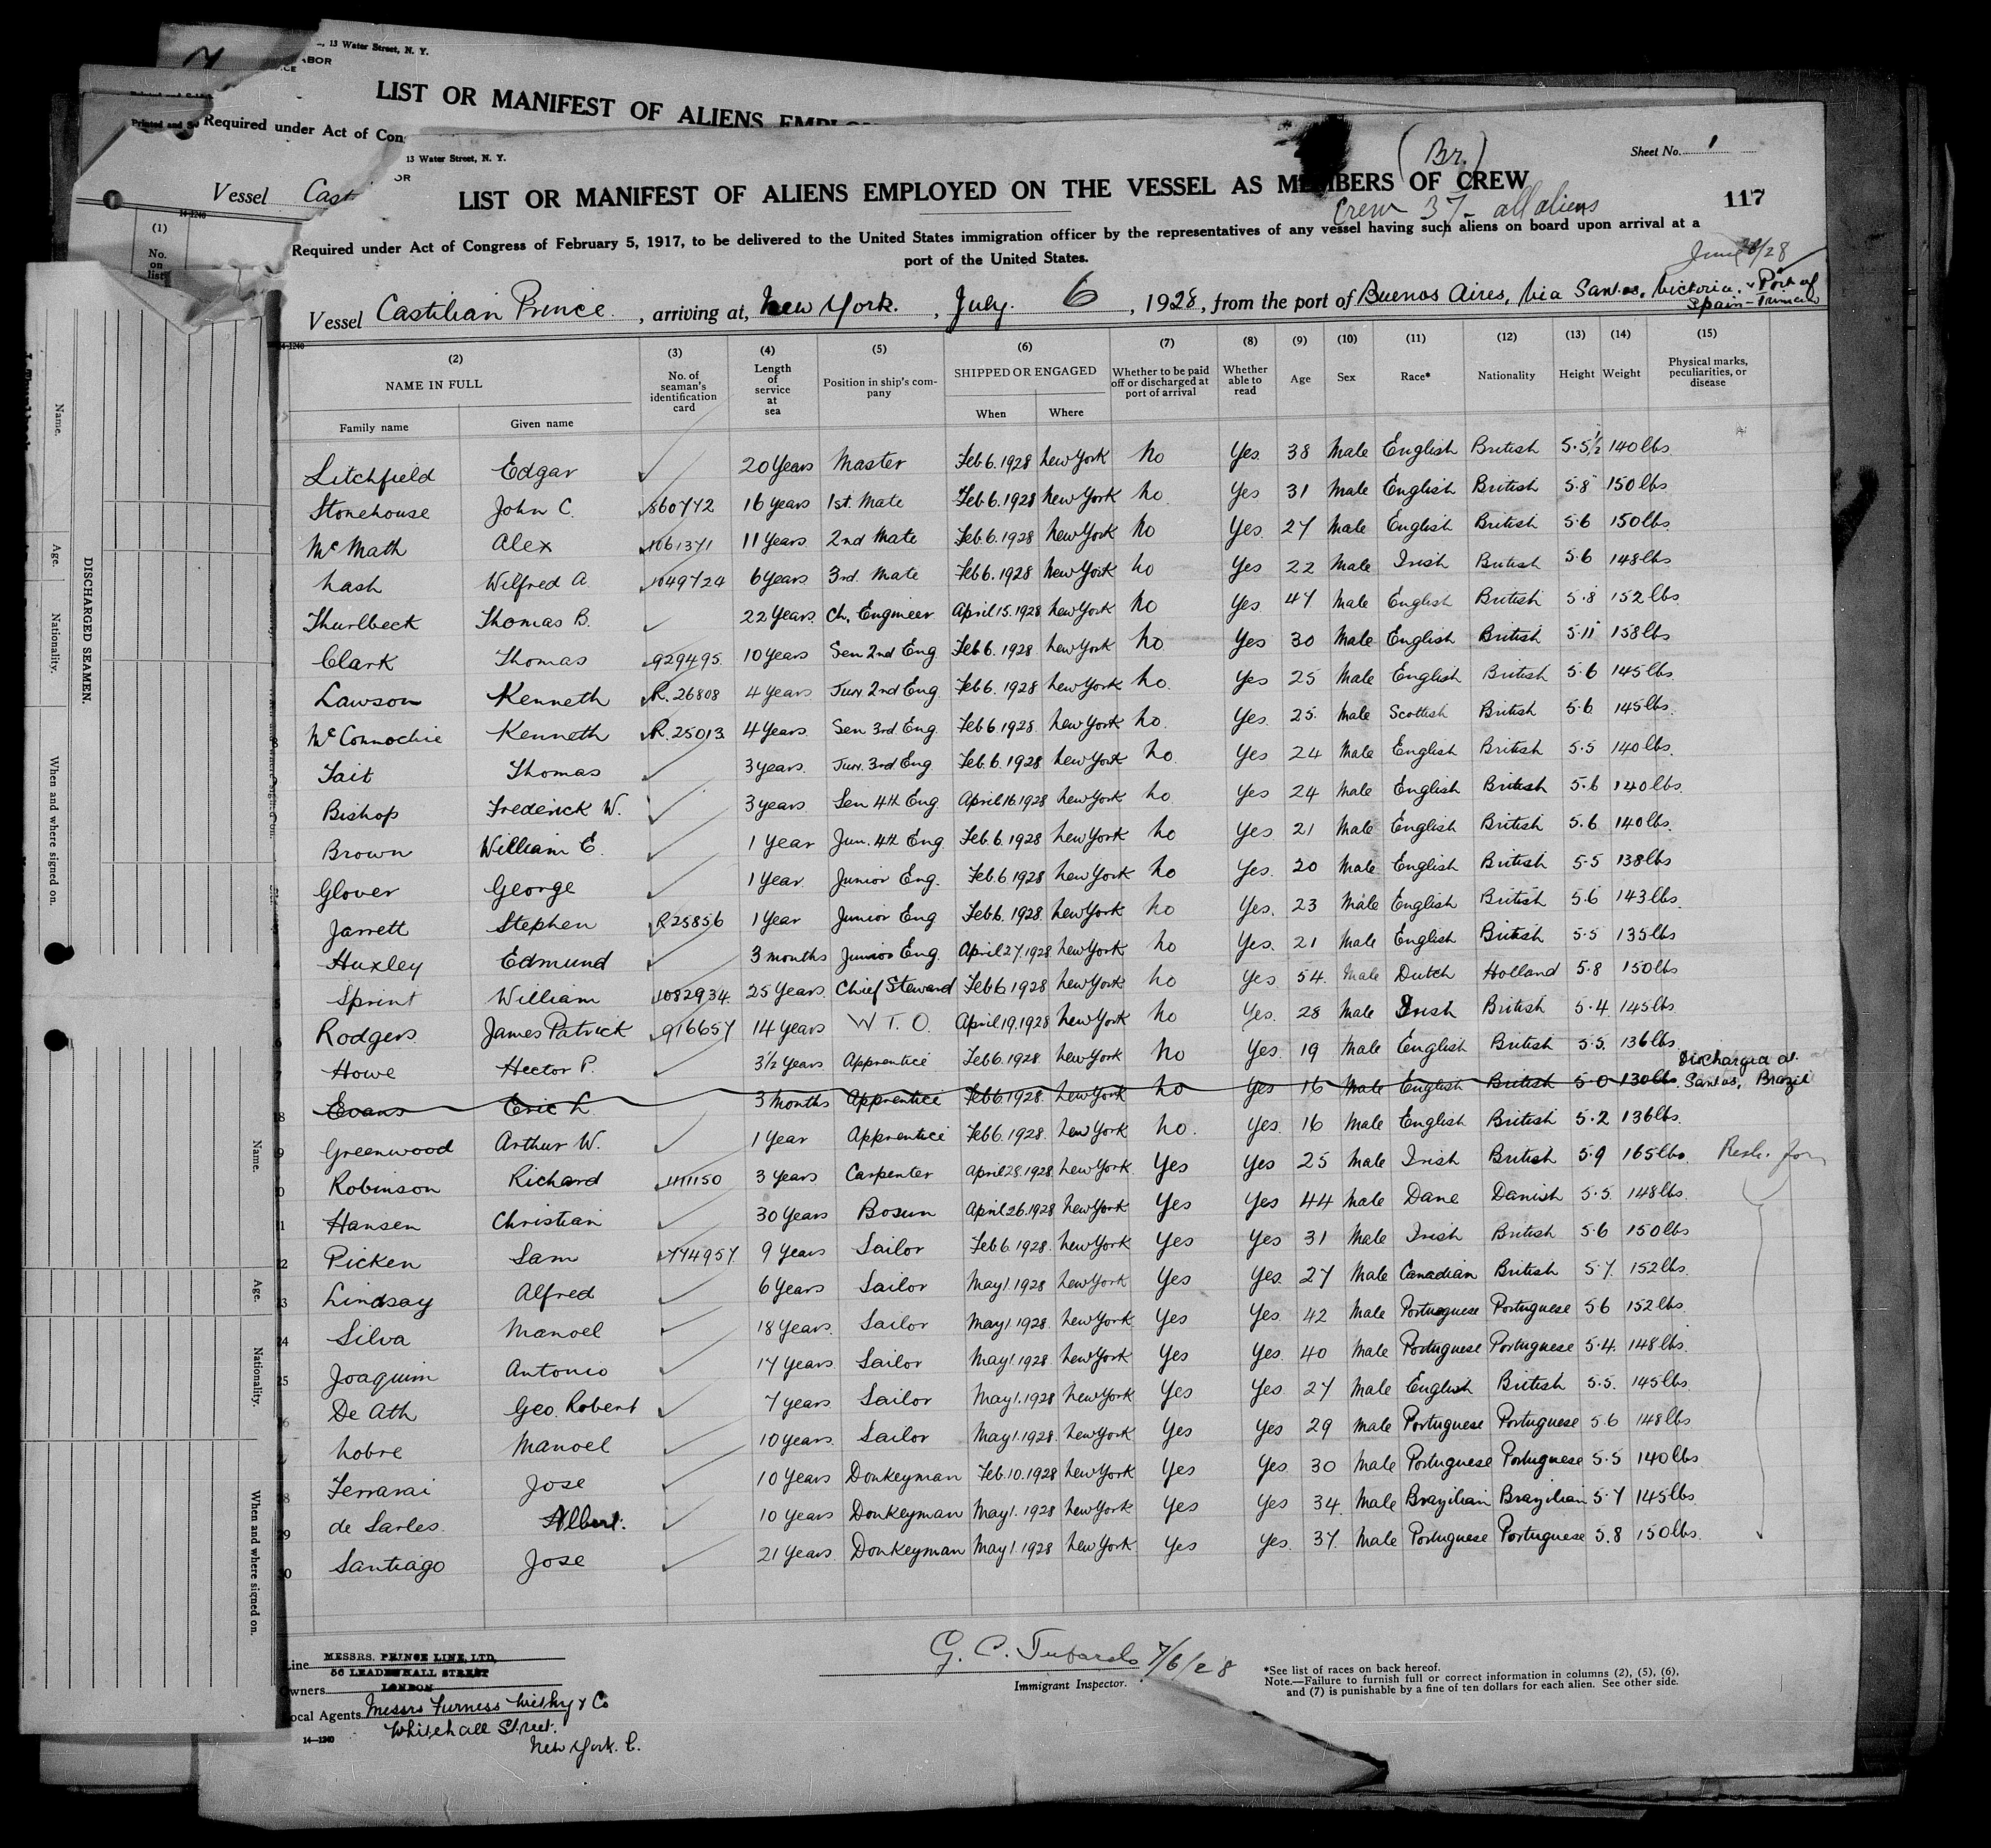 13 Water Street, N. Y.
ABOR
LIST OR MANIFEST OF ALIENS
Required under Act of Con
Vessel Cast
(1)
No. on list
13 Water Street, N. Y.
OR
(Br.)
Sheet No. 1
LIST OR MANIFEST OF ALIENS EMPLOYED ON THE VESSEL AS MEMBERS OF CREW
117
Crew 37 - all aliens
Required under Act of Congress of February 5, 1917, to be delivered to the United States immigration officer by the representatives of any vessel having such aliens on board upon arrival at a
port of the United States.
Vessel Castilian Prince, arriving at, New York. , July. 6, 1928, from the port of Buenos Aires, Via Santos, Victoria, & Port of
Spain
14-1240
(2) (3) (4) (5) (6) (7) (8) (9) (10) (11) (12) (13) (14) (15)
NAME IN FULL No. of seaman's identification card Length of service at sea Position in ship's company SHIPPED OR ENGAGED Whether to be paid off or discharged at port of arrival Whether able to read Age Sex Race* Nationality Height Weight Physical marks, peculiarities, or disease
Family name Given name When Where
Litchfield Edgar 20 Years Master Feb 6. 1928 New York No Yes. 38 Male English British 5.5½ 140 lbs
Stonehouse John C. 860772 16 years 1st. Mate Feb. 6. 1928 New York No. Yes 31 Male English British 5.8 150 lbs
McMath Alex 1061371 11 Years 2nd Mate Feb. 6. 1928 New York No Yes. 27 Male English British 5.6 150 lbs.
Nash Wilfred A. 1049724 6 Years 3rd. Mate Feb 6. 1928 New York No Yes 22 Male Irish British 5.6 148 lbs
Thurlbeck Thomas B. 22 Years. Ch. Engineer April 15. 1928 New York No Yes. 47 Male English British 5.8 152 lbs
Clark Thomas 929495. 10 Years Sen 2nd Eng Feb 6. 1928 New York No Yes 30 Male English British 5.11 158 lbs
Lawson Kenneth R. 26808 4 Years Jun 2nd Eng Feb 6. 1928 New York No. Yes 25 Male English British 5.6 145 lbs.
McConnochie Kenneth R. 25013 4 Years Sen 3rd. Eng. Feb 6. 1928 New York No. Yes. 25. Male Scottish British 5.6 145 lbs.
Tait Thomas 3 years. Jun. 3rd Eng Feb. 6. 1928 New York No. Yes 24 Male English British 5.5 140 lbs.
Bishop Frederick W. 3 years Sen 4th Eng April 16. 1928 New York No Yes 24 Male English British 5.6 140 lbs.
Brown William E. 1 Year Jun. 4th Eng. Feb. 6. 1928 New York No Yes 21 Male English British 5.6 140 lbs.
Glover George 1 Year Junior Eng. Feb. 6 1928 New York No Yes. 20 Male English British 5.5 138 lbs
Jarrett Stephen R 25856 1 Year Junior Eng Feb 6. 1928. New York No Yes. 23 Male English British 5.6 143 lbs.
Huxley Edmund 3 months Junior Eng. April 27. 1928 New York No Yes. 21 Male English British 5.5 135 lbs
Sprint William 1082934. 25 Years. Chief Steward Feb 6 1928 New York No Yes. 54. Male Dutch Holland 5.8 150 lbs
Rodgers James Patrick 916657 14 Years W T. O. April 19. 1928 New York No Yes. 28 Male Irish British 5.4. 145 lbs.
Howe Hector P. 3½ Years Apprentice Feb 6. 1928 New York No Yes. 19 Male English British 5.5. 136 lbs.
Evans Eric L. 3 Months Apprentice Feb 6. 1928. New York No Yes 16 Male English British 5.0 130 lbs. Discharged at Santos, Brazil
Greenwood Arthur W. 1 Year Apprentice Feb 6. 1928. New York No. Yes. 16 Male English British 5.2 136 lbs.
Robinson Richard 3 Years Carpenter April 28. 1928. New York. Yes Yes 25 Male Irish British 5.9 165 lbs.
Hansen Christian 30 Years Bosun April 26. 1928 New York Yes Yes 44 Male Dane Danish 5.5. 148 lbs.
Picken Sam 774957. 9 Years Sailor Feb. 6. 1928. New York Yes Yes 31 Male Irish British 5.6 150 lbs
Lindsay Alfred 6 Years Sailor May 1. 1928 New York Yes Yes. 27 Male Canadian British 5.7. 152 lbs.
Silva Manoel 18 Years. Sailor May 1. 1928. New York Yes Yes. 42 Male Portuguese Portuguese 5.6 152 lbs.
Joaquim Antonio 17 Years Sailor May 1. 1928 New York Yes Yes. 40 Male Portuguese Portuguese 5.4. 148 lbs.
De Ath Geo. Robert 7 years Sailor May 1. 1928 New York Yes Yes. 27 Male English British 5.5. 145 lbs
Nobre Manoel 10 Years. Sailor May 1. 1928. New York Yes Yes 29 Male Portuguese Portuguese 5.6 148 lbs
Ferrarai Jose 10 Years Donkeyman Feb. 10. 1928 New York Yes Yes. 30 Male Portuguese Portuguese 5.5 140 lbs
de Sarles Albert. 10 Years Donkeyman May 1. 1928 New York Yes Yes 34. Male Brazilian Brazilian 5.7 145 lbs.
Santiago Jose 21 Years Donkeyman May 1. 1928 New York Yes Yes. 37. Male Portuguese Portuguese 5.8 150 lbs.
Line MESSRS. PRINCE LINE, LTD,
56 LEADENHALL STREET
Owners LONDON
Local Agents Messrs Furness Withy & Co
Whitehall Street.
New York. C.
14-1240
G. C. 7/6/28
Immigrant Inspector.
*See list of races on back hereof.
Note.—Failure to furnish full or correct information in columns (2), (5), (6),
and (7) is punishable by a fine of ten dollars for each alien. See other side.
DISCHARGED SEAMEN.
Name. Age. Nationality. When and where signed on.
Name. Age. Nationality. When and where signed on.